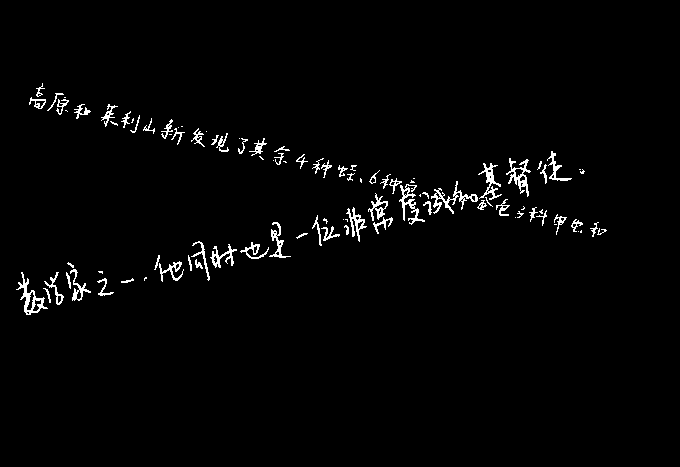 高原和莱利山新发现了其余4种蛙、6种
数学家之一.他同时也是一位非常虔诚的基督徒。